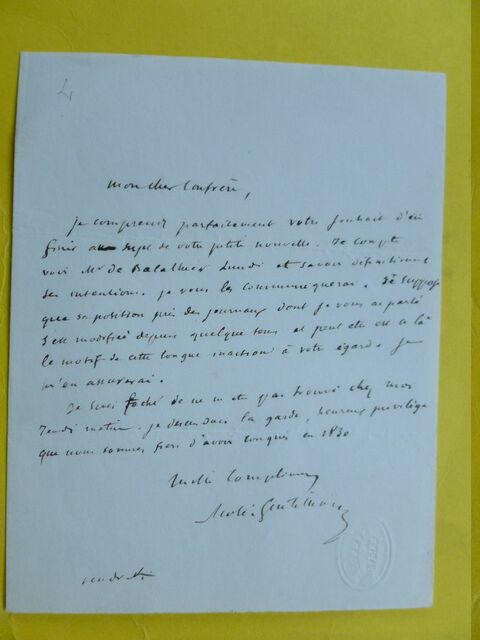 mon cher Confrère,
je comprends parfaitement votre souhait d'en
finir au sujet de votre petite nouvelle. Je compte
voir Mr de Balathier Lundi et savoir définitivement
ses intentions. je vous les communiquerai. Je suppose
que sa position près des journaux dont je vous ai parlé
s'est modifiée depuis quelque tems et peut etre est ce là
le motif de cette longue inaction à votre égard. Je
m'en assurerai.
Je suis faché de ne m'etre pas trouvé chez moi
Jeudi matin. je descendais la garde, heureux privilège
que nous sommes fiers d'avoir conquis en 1830
Mille Complimens
vendredi